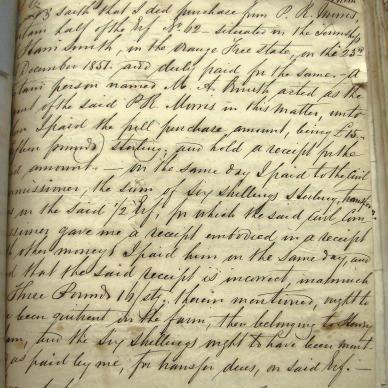 & B saith that I did purchase from P. R. Morris,
half of the Erf No. 62 - situated in the Township
Smith, in the Orange Free State, on the 23rd
December 1851. and duly paid for the same. - A
person named M. A. Smith, acted as the
of the said P.R. Morris in this matter, unto
I paid the full purchase amount, being £15.
(fifteen pounds) Sterling; and hold a receipt for the
amount. - on the same day I paid to the Civil
Commissioner, the sum of six shillings Sterling transfer
on the said ½ Erf, for which the said Civil Com-
missioner gave me a receipt embodied in a receipt
other moneys I paid him on the same day, and
that the said receipt is incorrect, inasmuch
Three Pounds 16/ stg. therein mentioned, ought to
been quitrent on the farm, then belonging to
and the six Shillings ought to have been ment-
as paid by me, for transfer dues, on said Erf. -